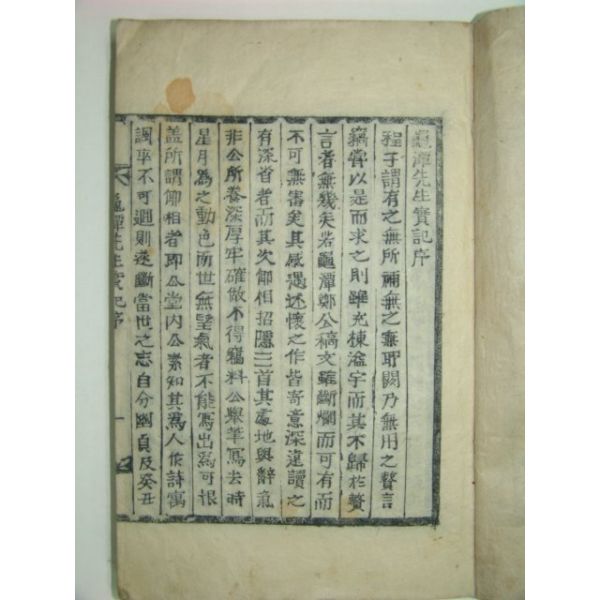 龜潭先生實記序
程子謂有之無所補無之靡所闕乃無用之贅言
竊嘗以是而求之則雖充棟溢宇而其不歸於贅
言者無幾矣若龜潭鄭公稿文雖斷爛而可有而
不可無審矣其感遇述懷之作皆寄意深遠讀之
有深省者而其次卹相招隱二首其處地與辭氣
非公所養深厚牢確做不得竊料公舉筆寫去時
星月爲之動色而世無望氣者不能寫出爲可恨
盖所謂卹相者卽公堂內公素知其爲人作詩寓
諷卒不可廻則遂斷當世之志自分幽貞及癸丑
龜潭先生實記序
一